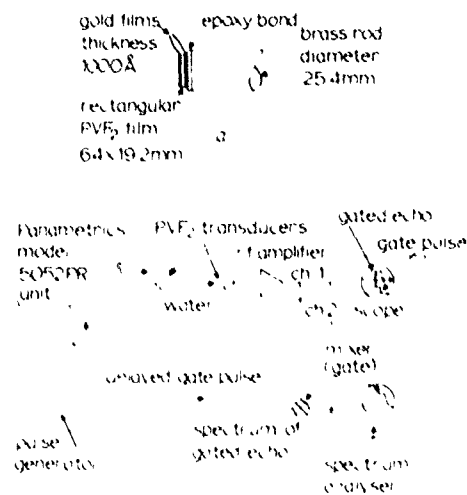 gold films
thickness
1000Å
epoxy bond
brass rod
diameter
25.4mm
rectangular
PVF2 film
64x19.2mm
a
Panametrics
model
5052PR
unit
PVF2 transducers
water
rf amplifier
ch. 1
ch. 2
gated echo
gate pulse
scope
mixer
(gate)
delayed gate pulse
pulse
generator
spectrum of
gated echo
spectrum
analyser